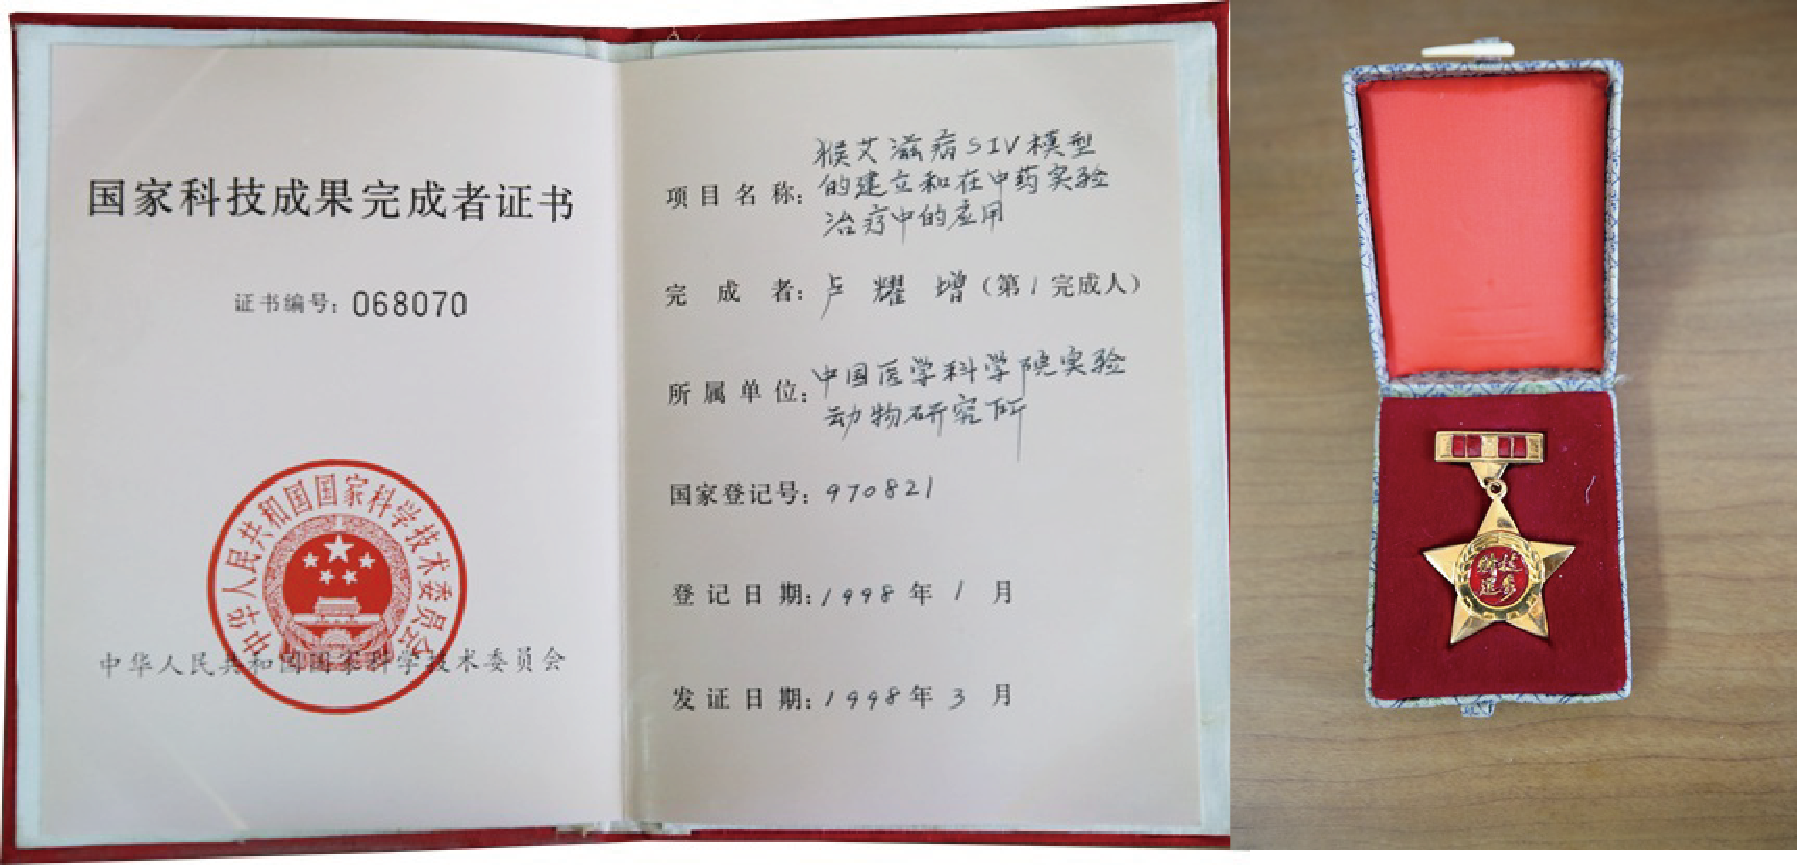 国家科技成果完成者证书
证书编号：068070
中华人民共和国国家科学技术委员会
中华人民共和国国家科学技术委员会
项目名称：猴艾滋病SIV模型
的建立和在中药实验
治疗中的应用
完成者：卢耀增（第1完成人）
所属单位：中国医学科学院实验
动物研究所
国家登记号：970821
登记日期：1998年1月
发证日期：1998年3月
科技
进步